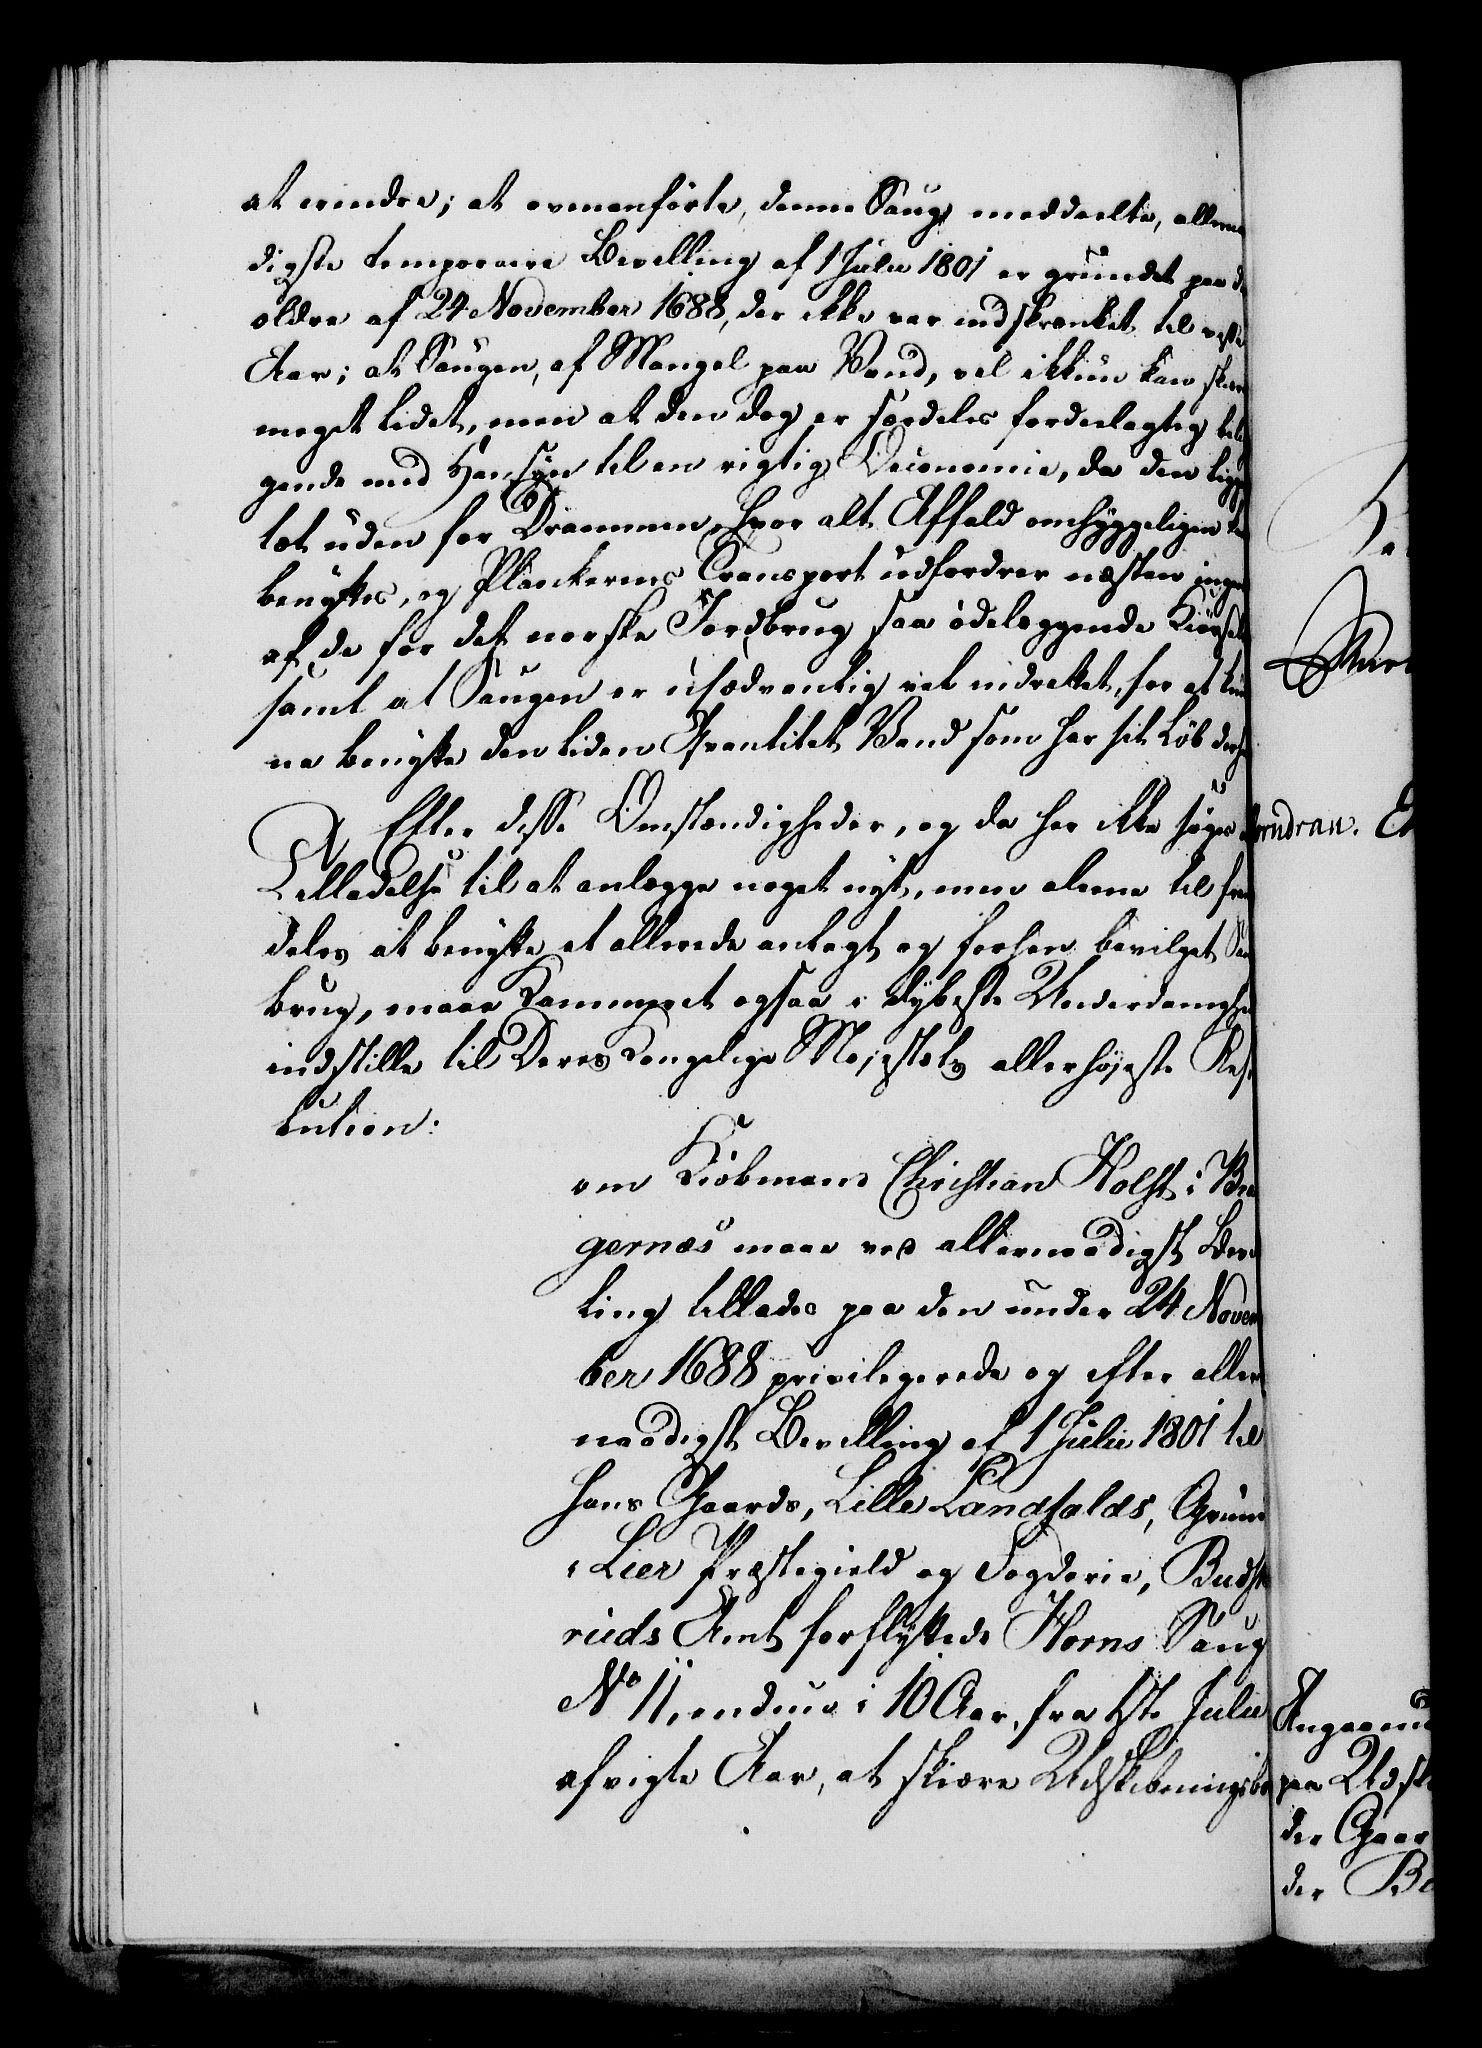 at erindre; at ovenanførte, denne Saug meddeelte, allerna
digste temporaire Bevilling af 1 Julii 1801 er grundet paa d
ældre af 24 November 1688, der ikke var indskrænket til visse
Aar; at Saugen, af Mangel paa Vand, vel ikkun kan skiære
meget lidet, men at den dog er særdeles fordeelagtig bele
gende med Hensyn til en rigtig Oeconomie, da den ligger
tæt uden for Drammen, hvor alt Affald omhyggeligen
benyttes, og Plankernes Transport udfordrer næsten ingen
af de for det norske Jordbrug saa ødelæggende Kiørsels
samt at Saugen er usædvanlig vel indrettet, for at kun
ne benytte den liden Qvantitet Vand som har sit Løb der
Efter disse Omstændigheder, og da her ikke søges
Tilladelse til at anlægge noget nyt, men alene til frem
deles at benytte et allerede anlagt og forhen bevilget Sau
brug, maae Kammeret ogsaa i dybeste Underdanighe
indstille til Deres Kongelige Majestæts allerhøjeste Reso
lution:
om Kiøbmand Christian Holst i Bra
gernæs maae ved allernaadigst Bevil
ling tillades paa den under 24 Novem
ber 1688 privilegerede og efter aller
naadigst Bevilling af 1 Julii 1801 til
hans Gaards, Lille Landfalds, Grund
i Lier Præstegield og Fogderie, Budske
ruds Amt forflyttede Horns Saug
No 11, endnu i 10 Aar, fra 1ste Julii
afvigte Aar, at skiære Udskibningsbo
Angaaend
paa Udsk
der Gaar
der Be